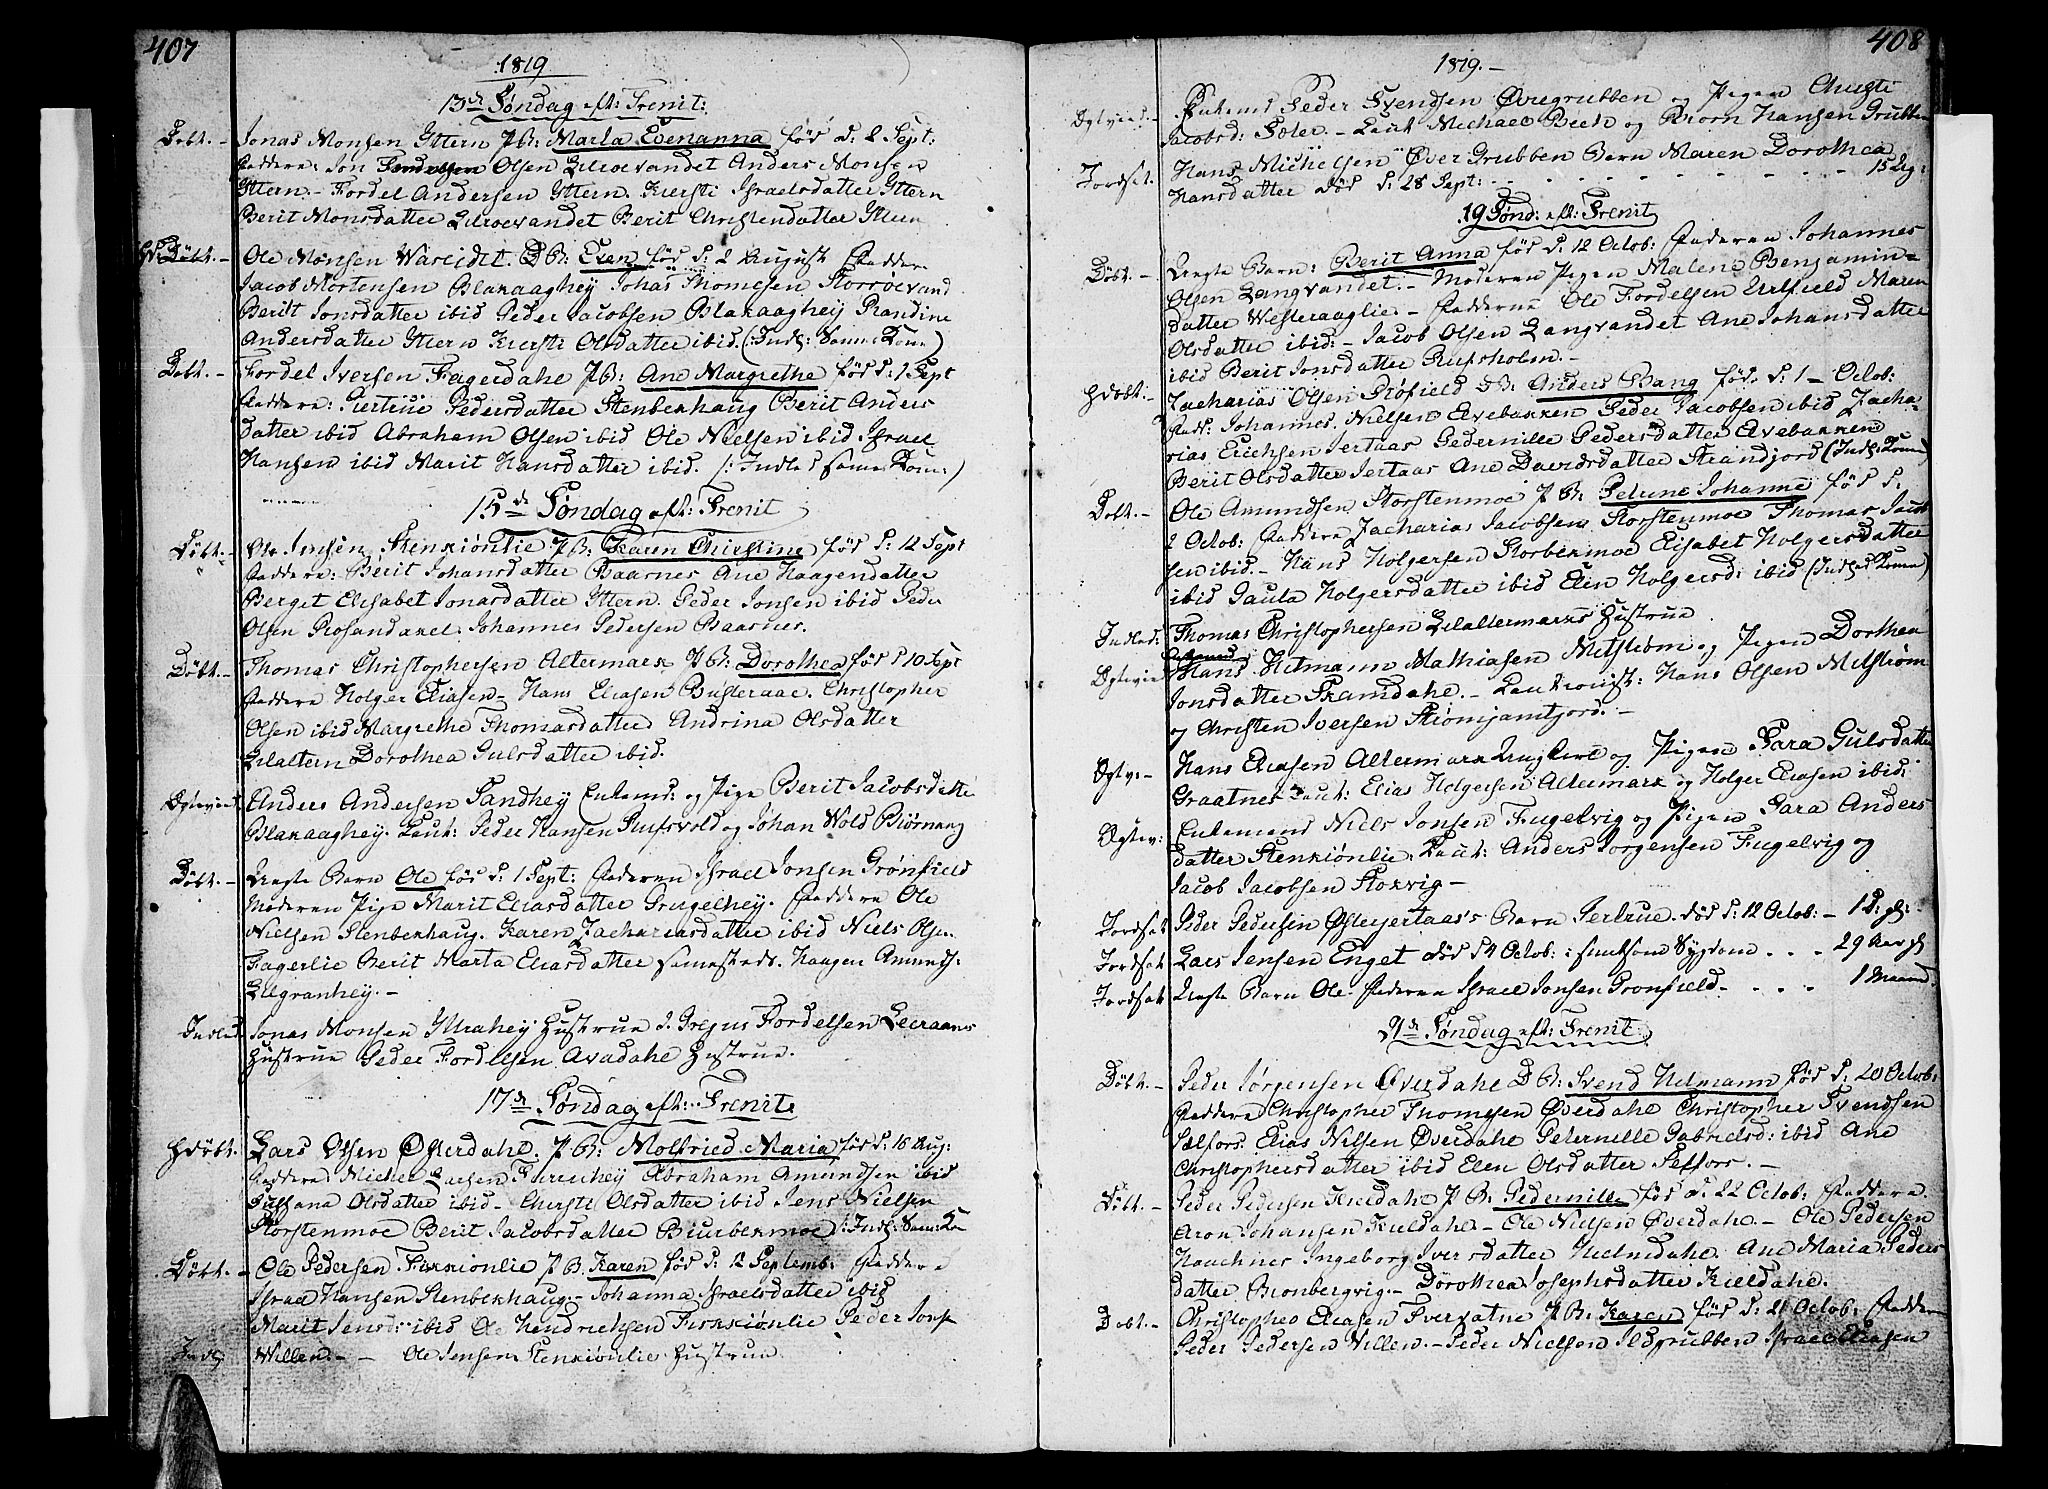 407
1819
13de Søndag eft: Trenit:
Døbt. – Jonas Monsen Yttern P B: Marta Evenanna fød d: 2 Sept:
Faddere: Jon Olsen Lilroevandet Anders Monsen
Yttern – Fordel Andersen Yttern. Kiersti Israelsdatter Yttern
Berit Monsdatter Lilroevandet Berit Christendatter Yttern
Døbt. – Ole Monsen Wareidet. D B: Elen fød d: 2 August Faddere
Jacob Mortensen Blakaaghey Johas Thomesen Storrøevand
Berit Jonsdatter ibid Peder Jacobsen Blakaaghey Randine
Andersdatter Yttern Kiersti Olsdatter ibid. (: Indl: Samme Kone)
Døbt. – Fordel Iversen Fagerdahl P B: Ane Margrethe fød d: 1 Sept
Faddere: Giertrue Pedersdatter Stenbekhaug Berit Anders
datter ibid Abraham Olsen ibid Ole Nielsen ibid. Israel
Hansen ibid Marit Hansdatter ibid. (: Indled samme Kone:)
15de Søndag eft: Trenit
Døbt. – Ole Jensen Stenkiønlie P B: Karen Christine fød d: 12 Sept
Faddere: Berit Johansdatter Baasnes Ane Haagendatter
Berget Elisabet Jonasdatter Yttern. Peder Jonsen ibid Peder
Olsen Rosandaxel. Johannes Pedersen Baasnes.
Døbt. – Thomas Christophersen Altermark P B: Dorothea fød d 10 Sept
Faddere Holger Eliasen – Hans Eliasen Busteraae. Christopher
Olsen ibid Margrethe Thomasdatter Andrina Olsdatter
Lilaltern Dorothea Gulsdatter ibid.
Egtevied. Anders Andersen Sandhey Enkemd: og Pige Berit Jacobsdatter
Blakaaghey. Caut: Peder Hansen Rufsvold og Johan Wold Biørnang
Døbt. – Uægte Barn Ole fød d: 1 Sept: Faderen Israel Jonsen Grønfield
Moderen Pige Marit Eliasdatter Grugelhey. Faddere Ole
Nielsen Stenbekhaug. Karen Zachariasdatter ibid Niels Olsen
Fagerlie Berit Marta Eliasdatter samesteds. Haagen Amunds:
Lilgranhey. –
Indled Jonas Monsen Yttrahey Hustrue d. Gregus Fordelsen Leeraans
Hustrue Peder Fordelsen Avadahl Hustrue.
17de Søndag eft: Trenit:
Hdøbt. Lars Olsen Østerdahl. P B: Molfried Maria fød d: 16 Aug:
Faddere Michel Larsen Furuhey Abraham Amundsen ibid
Susana Olsdatter ibid – Chersti Olsdatter ibid Jens Nielsen
Storstenmoe Berit Jacobsdatter Biurbekmoe (: Indl: Sam: Ko
Døbt. – Ole Pedersen Finkiønlie P B. Karen fød d: 12 Septemb: Faddere
Israel Hansen Stenbekhaug – Johanna Israelsdatter ibid
Marit Jensd: ibid Ole Hendrichsen Finkiønlie Peder Jons
Indl Willen. – – Ole Jensen Stenkiønlie Hustrue
408
1819. –
Egtvied. – Enkemd Peder Svendsen Øvregrubben og Pigen Chersti
Jacobsd: Sæter. – Caut Michael Bech og Biorn Hansen Grubben
Jordsat. Hans Michelsen Øver Grubben Barn Maren Dorothea
Hansdatter død d: 28 Sept: 15 Dg:
19 Sønd: eft: Trenit
Døbt. – Uægte Barn: Berit Anna fød d: 12 Octob: Faderen Johannes
Olsen Langvandet. – Moderen Pigen Malene Benjamin=
datter Westeraaglie – Fadderne Ole Fordelsen Urtfield Maren
Olsdatter ibid: – Jacob Olsen Langvandet Ane Johansdatter
ibid Berit Jonsdatter Rufsholm. –
Hdøbt. – Zacharias Olsen Røfield D B: Anders Bang fød, d: 1 – Octob:
Fadd: Johannes. Nielsen Elvebakken Peder Jacobsen ibid Zacha=
rias Erichsen Jertaas Pedernille Pedersdatter Elvebakken
Berit Olsdatter Jertaas Ane Davidsdatter Strandjord (Indl: Kone)
Døbt. – Ole Amundsen Storstenmoe P B: Petrine Johanne fød d:
2 Octob: Faddere Zacharias Jacobsen Storstenmoe Thomas Jacob
sen ibid. – Hans Holgersen Storbekmoe Elisabet Holgersdatter
ibid Paula Holgersdatter ibid Elen Holgersd: ibid (Indled Konen)
Indled: Thomas Christophersen Lilaltermarks Hustrue
Egtvied Enkemd Hans Hitmann Mathiasen Nilstrøm og Pigen Dorthea
Jonsdatter Skamdahl. – Cautionist: Hans Olsen Nilstrøm
og Christen Iversen Strømjamtjord. –
Egtv: – Hans Eliasen Altermark Ungkarl og Pigen Sara Gulsdatter
Graatnes Caut: Elias Holgersen Altermark og Holger Eliasen ibid:
Egtev: Enkemand Niels Jonsen Fugelvig og Pigen Sara Anders
datter Stenkiønlie. Caut: Anders Jørgensen Fugelvig og
Jacob Jacobsen Stokvig –
Jordsat Peder Pedersen Østerjertaas's Barn Jertrue. død d: 12 Octob: – 1 D: gl:
Jordsat Lars Jensen Enget død d 4 Octob: i smitsom Sygdom . . . 29 Aar gl
Jordsat Uægte Barn Ole. Faderen Israel Jonsen Grønfield – . . . 1 Maaned
21de Søndag eft: Trenit:
Døbt. – Peder Jørgensen Øverdahl D B: Svend Hitmann fød d: 20 Octob:
Faddere Christopher Thomesen Øverdahl Christopher Svendsen
Selfors. Elias Nilsen Øverdahl Peternelle Gabrielsd: ibid Ane
Christophersdatter ibid Elen Olsdatter Selfors. –
Døbt. – Peder Pedersen Kieldahl P B: Pedernille fød d: 22 Octob: Faddere.
Aron Johansen Kieldahl – Ole Nielsen Øverdahl. – Ole Pedersen
Hauknes Ingeborg Iversdatter Hielmdahl. Ane Maria Peders
datter Bionbergvig. – Dorothea Josephsdatter Kieldahl.
Døbt. – Christopher Eliasen Tvervatne P B: Karen fød d: 21 Octob: Faddere
Peder Pedersen Willen. – Peder Nielsen Ildgrubben Israel Eliasen